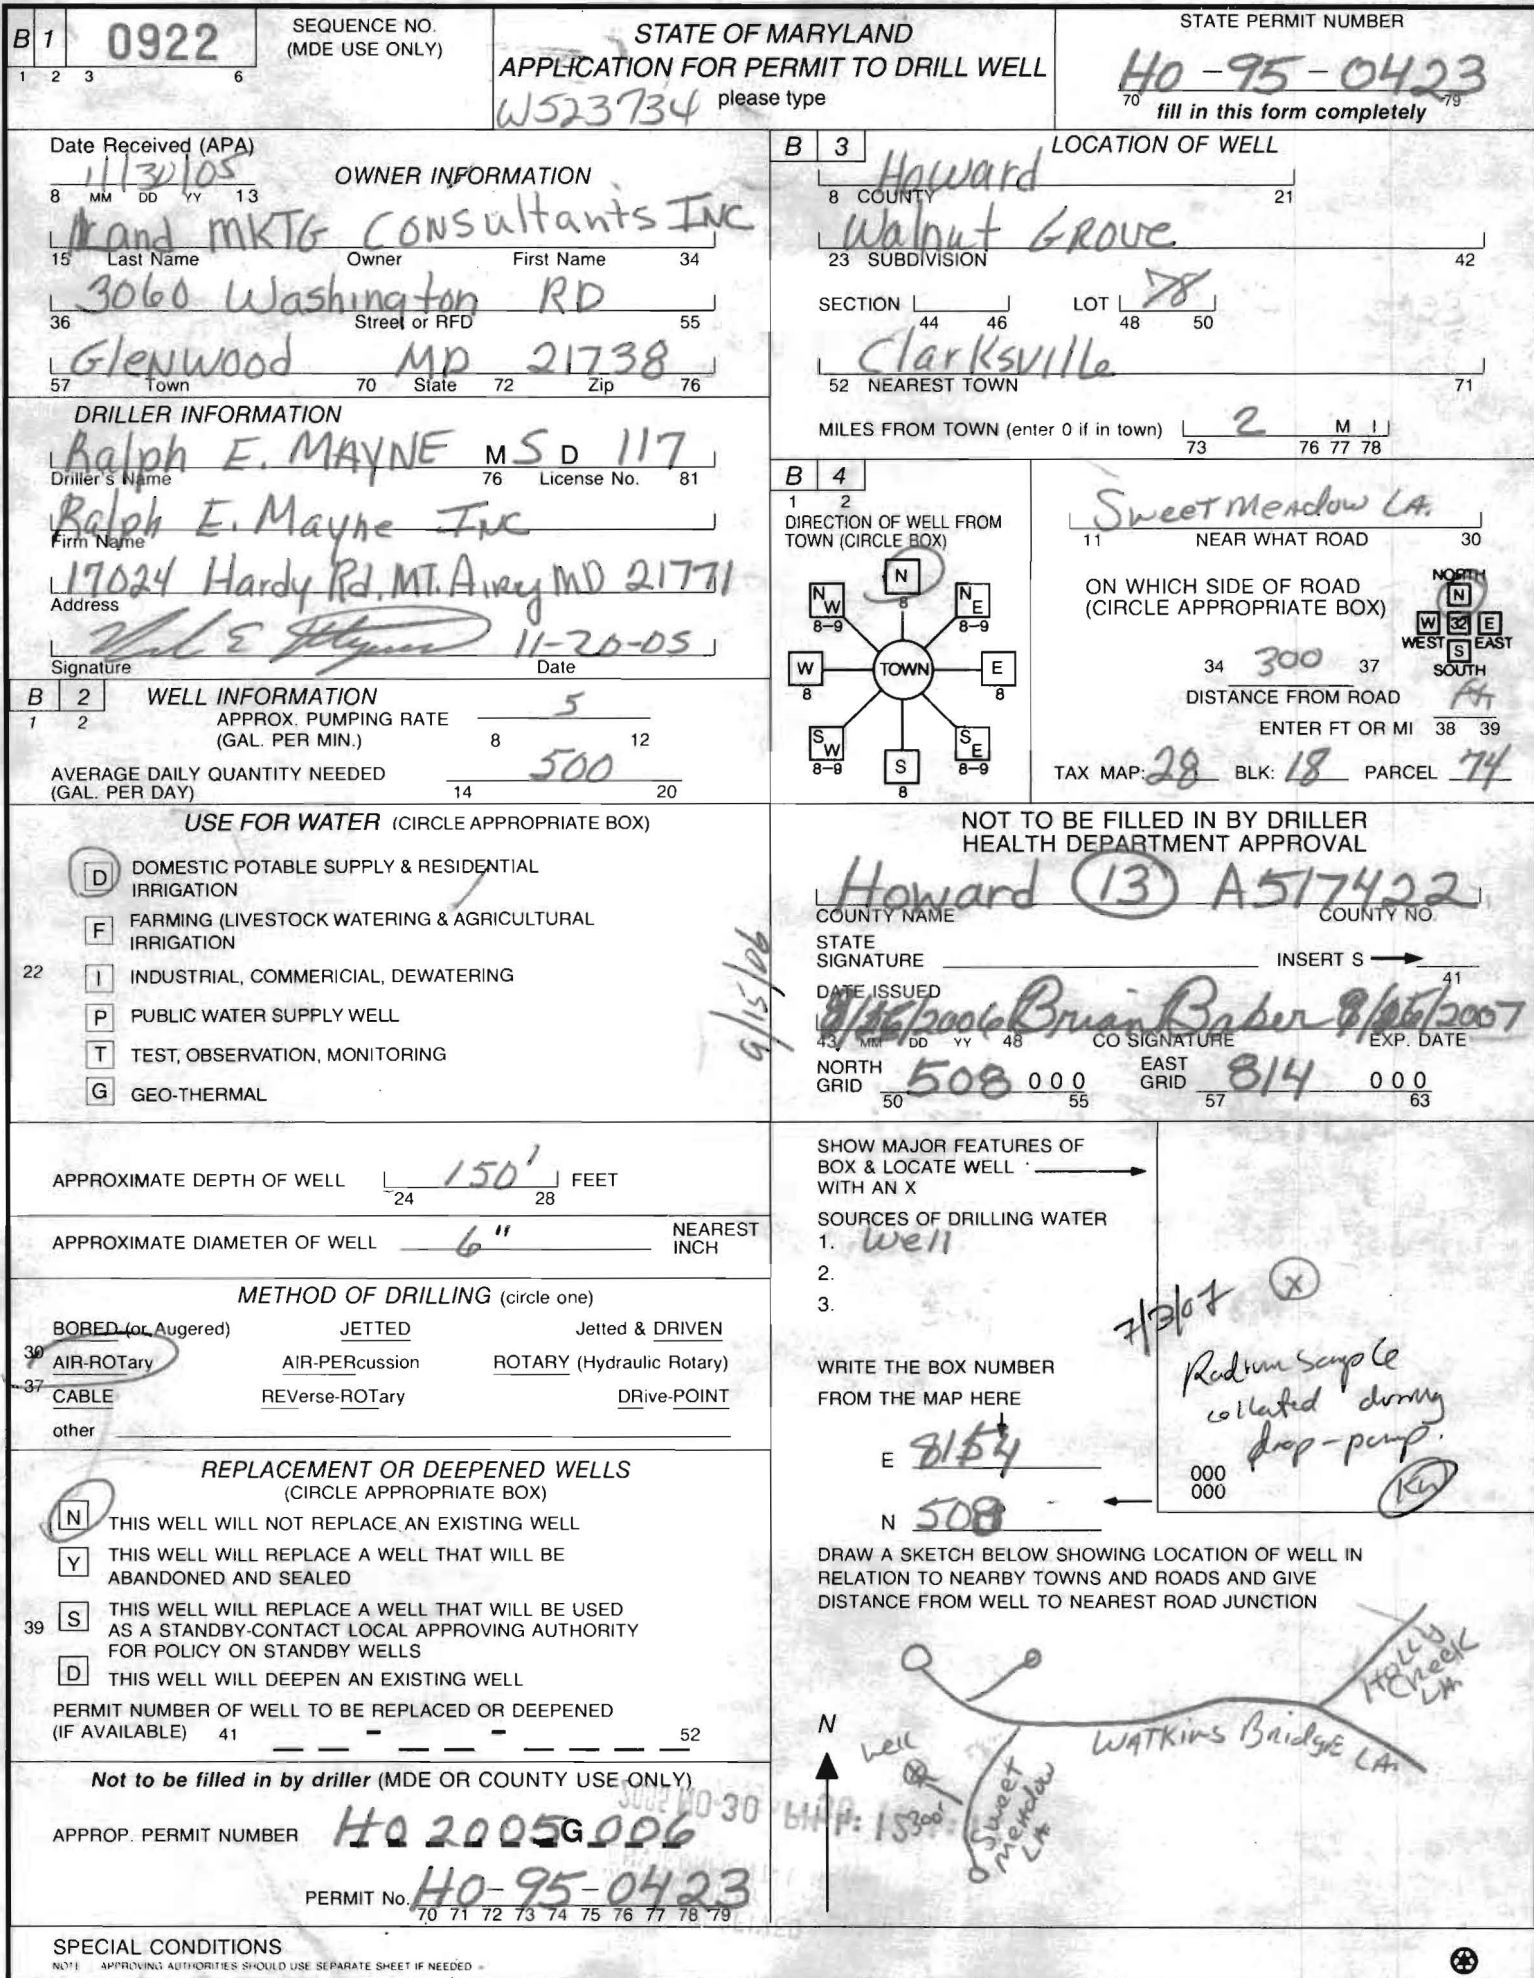 B 1 0922
1 2 3 6
SEQUENCE NO.
(MDE USE ONLY)
STATE OF MARYLAND
APPLICATION FOR PERMIT TO DRILL WELL
W523734 please type
STATE PERMIT NUMBER
HO-95-0423
70 79
fill in this form completely
Date Received (APA)
11/30/05
8 MM DD YY 13
OWNER INFORMATION
Land MKTG CONSultants INC
15 Last Name Owner First Name 34
3060 Washington RD
36 Street or RFD 55
GleNwood MD 21738
57 Town 70 State 72 Zip 76
DRILLER INFORMATION
Ralph E. MAYNE M S D 117
Driller's Name 76 License No. 81
Ralph E. Mayne INC
Firm Name
17024 Hardy Rd. MT. Airy MD 21771
Address
11-20-05
Signature Date
B 2 WELL INFORMATION
1 2
APPROX. PUMPING RATE 5
(GAL. PER MIN.) 8 12
AVERAGE DAILY QUANTITY NEEDED 500
(GAL. PER DAY) 14 20
USE FOR WATER (CIRCLE APPROPRIATE BOX)
D DOMESTIC POTABLE SUPPLY & RESIDENTIAL
IRRIGATION
F FARMING (LIVESTOCK WATERING & AGRICULTURAL
IRRIGATION
22 I INDUSTRIAL, COMMERICIAL, DEWATERING
P PUBLIC WATER SUPPLY WELL
T TEST, OBSERVATION, MONITORING
G GEO-THERMAL
9/15/06
APPROXIMATE DEPTH OF WELL 150' FEET
24 28
APPROXIMATE DIAMETER OF WELL 6" NEAREST
INCH
METHOD OF DRILLING (circle one)
BORED (or Augered) JETTED Jetted & DRIVEN
30 AIR-ROTary AIR-PERcussion ROTARY (Hydraulic Rotary)
37 CABLE REVerse-ROTary DRive-POINT
other
REPLACEMENT OR DEEPENED WELLS
(CIRCLE APPROPRIATE BOX)
N THIS WELL WILL NOT REPLACE AN EXISTING WELL
Y THIS WELL WILL REPLACE A WELL THAT WILL BE
ABANDONED AND SEALED
39 S THIS WELL WILL REPLACE A WELL THAT WILL BE USED
AS A STANDBY-CONTACT LOCAL APPROVING AUTHORITY
FOR POLICY ON STANDBY WELLS
D THIS WELL WILL DEEPEN AN EXISTING WELL
PERMIT NUMBER OF WELL TO BE REPLACED OR DEEPENED
(IF AVAILABLE) 41 - - 52
Not to be filled in by driller (MDE OR COUNTY USE ONLY)
APPROP. PERMIT NUMBER HO 2005 G 006
PERMIT No. HO-95-0423
70 71 72 73 74 75 76 77 78 79
SPECIAL CONDITIONS
NOTE APPROVING AUTHORITIES SHOULD USE SEPARATE SHEET IF NEEDED
B 3 LOCATION OF WELL
Howard
8 COUNTY 21
Walnut GROVE
23 SUBDIVISION 42
SECTION LOT 78
44 46 48 50
Clarksville
52 NEAREST TOWN 71
MILES FROM TOWN (enter 0 if in town) 2 M I
73 76 77 78
B 4
1 2
DIRECTION OF WELL FROM
TOWN (CIRCLE BOX)
N
8
NW NE
8-9 8-9
W TOWN E
8 8
SW SE
8-9 8-9
S
8
Sweet Meadow LA.
11 NEAR WHAT ROAD 30
ON WHICH SIDE OF ROAD
(CIRCLE APPROPRIATE BOX)
NORTH
N
W 32 E
WEST S EAST
SOUTH
34 300 37
DISTANCE FROM ROAD ft
ENTER FT OR MI 38 39
TAX MAP: 28 BLK: 18 PARCEL 74
NOT TO BE FILLED IN BY DRILLER
HEALTH DEPARTMENT APPROVAL
Howard 13 A517422
COUNTY NAME COUNTY NO.
STATE
SIGNATURE INSERT S
41
DATE ISSUED
Brian Baker
43 MM DD YY 48 CO SIGNATURE EXP. DATE
NORTH
GRID 508 0 0 0
50 55
EAST
GRID 814 0 0 0
57 63
SHOW MAJOR FEATURES OF
BOX & LOCATE WELL
WITH AN X
SOURCES OF DRILLING WATER
1. Well
2.
3.
WRITE THE BOX NUMBER
FROM THE MAP HERE
E
N 508
7/3/07 X
Radium sample
collected during
drop-pump.
000
000
DRAW A SKETCH BELOW SHOWING LOCATION OF WELL IN
RELATION TO NEARBY TOWNS AND ROADS AND GIVE
DISTANCE FROM WELL TO NEAREST ROAD JUNCTION
N
HOLLY
CREEK
LA.
WATKINS BridgE LA.
well
300'
Sweet
Meadow
LA